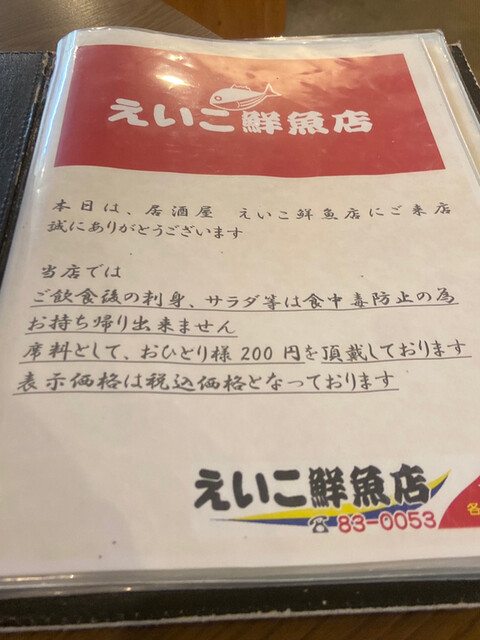 えいこ鮮魚店
本日は、居酒屋 えいこ鮮魚店にご来店
誠にありがとうございます
当店では
ご飲食後の刺身、サラダ等は食中毒防止の為
お持ち帰り出来ません
席料として、おひとり様200円を頂戴しております
表示価格は税込価格となっております
えいこ鮮魚店
☎83-0053